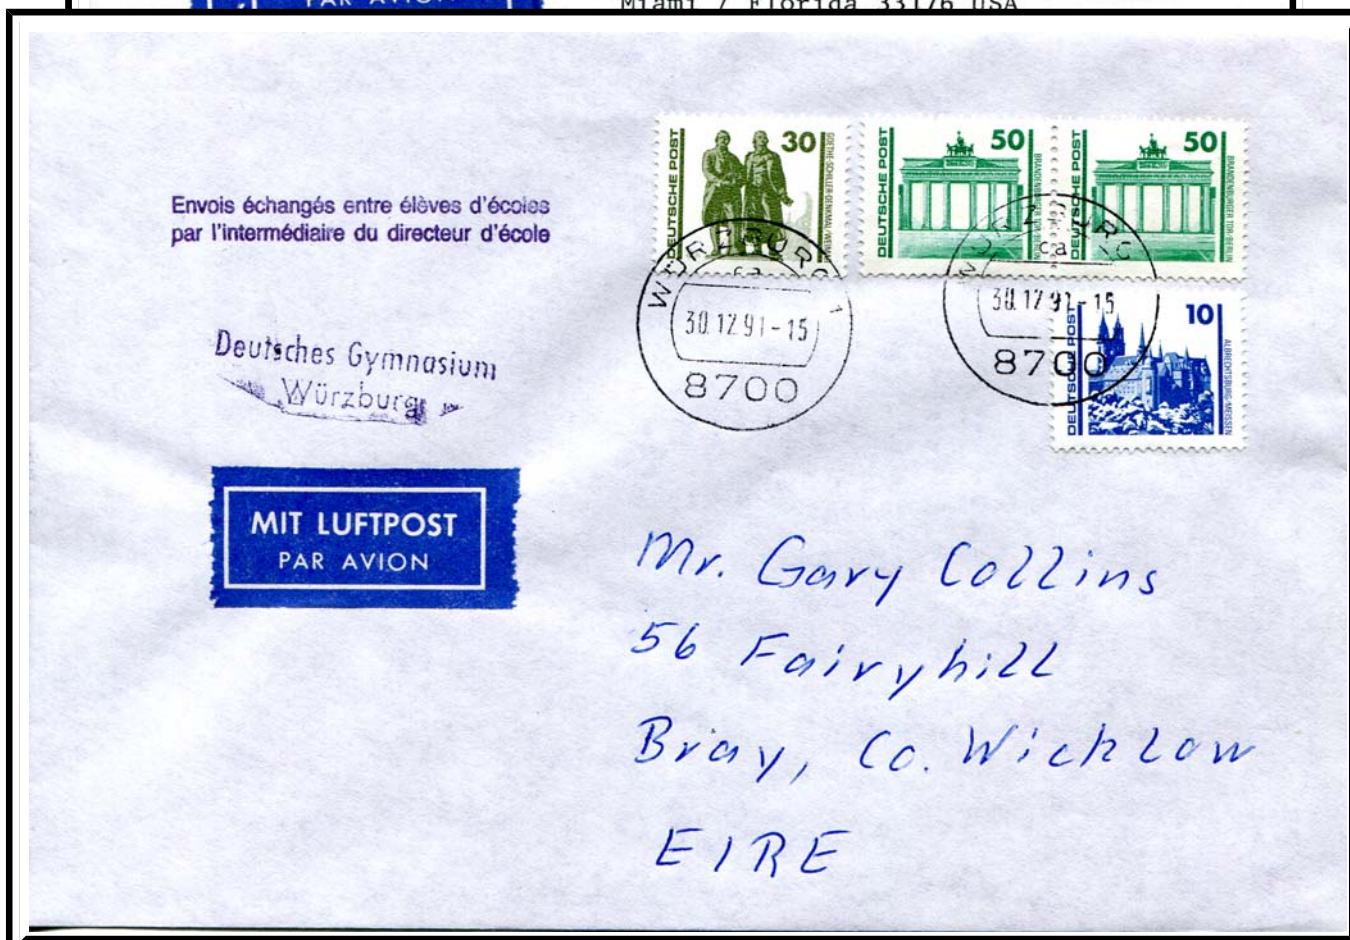 PAR AVION
Miami / Florida 33176 USA
Envois échangés entre élèves d'écoles
par l'intermédiaire du directeur d'école
Deutsches Gymnasium
Würzburg
MIT LUFTPOST
PAR AVION
DEUTSCHE POST
30
GOETHE-SCHILLER-DENKMAL-WEIMAR
DEUTSCHE POST
50
BRANDENBURGER TOR-BERLIN
DEUTSCHE POST
50
BRANDENBURGER TOR-BERLIN
DEUTSCHE POST
10
ALBRECHTSBURG-MEISSEN
WÜRZBURG 1
ca
30.12.91-15
8700
WÜRZBURG
ca
30.12.91-15
8700
Mr. Gary Collins
56 Fairyhill
Bray, Co. Wicklow
EIRE